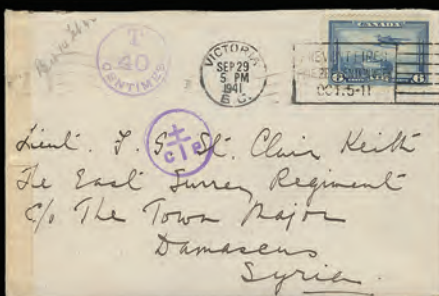 T
40
CENTIMES
VICTORIA
SEP 29
5 PM
1941
B.C.
PREVENT FIRES
OCT. 5-11
CANADA
6 6
C P
Lieut. J. S. St. Clair Keith
The East Surrey Regiment
c/o The Town Major
Damascus
Syria.